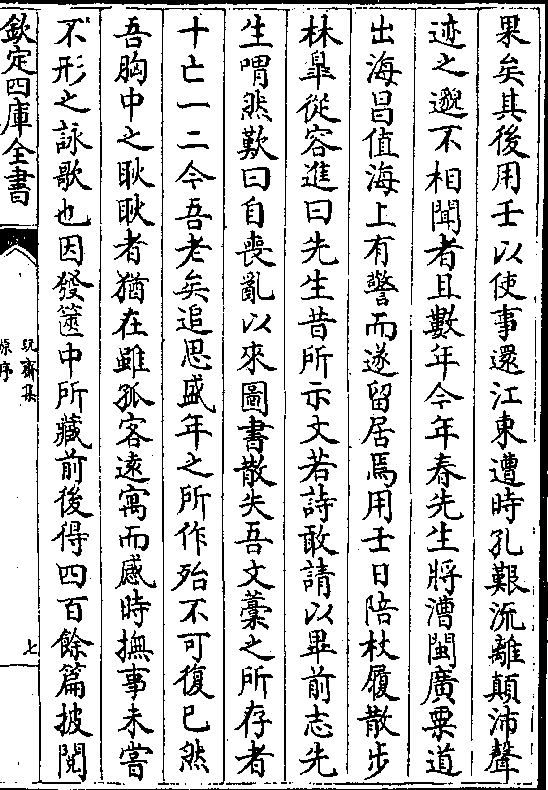 果矣其後用壬以使事還江東遭時孔艱流離顛沛聲
迹之邈不相聞者且數年今年春先生將漕閩廣粟道
出海昌值海上有警而遂留居焉用壬日陪杖履散步
林臯從容進曰先生昔所示文若詩敢請以畢前志先
生喟然歎曰自喪亂以來圖書散失吾文藁之所存者
十亡一二今吾老矣追思盛年之所作殆不可復已然
吾胸中之耿耿者猶在雖孤客遠寓而感時撫事未嘗
不形之詠歌也因發篋中所藏前後得四百餘篇披閱
欽定四庫全書
玩齋集
原序
七